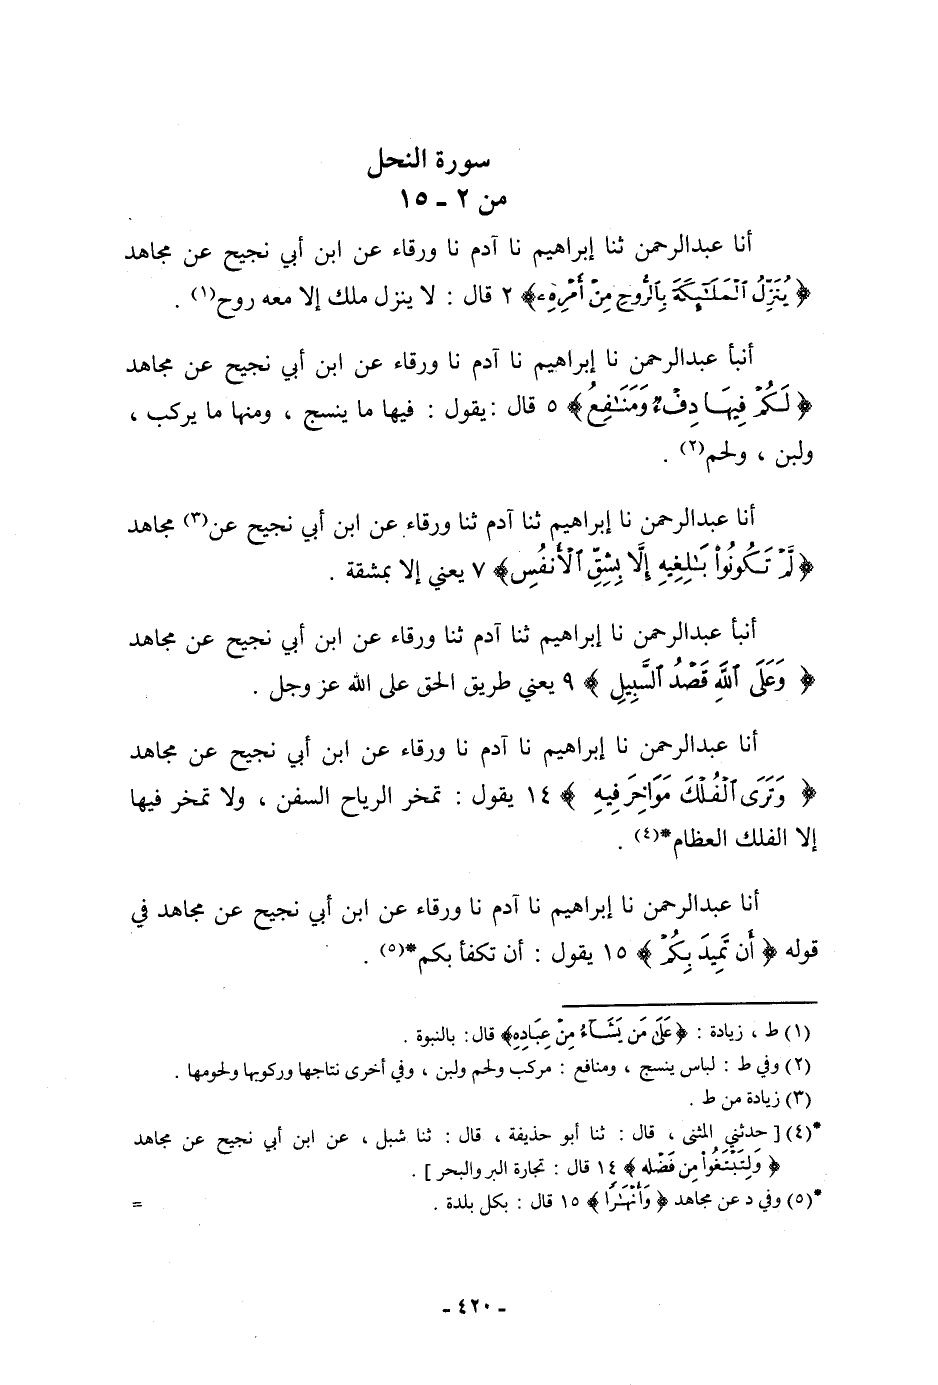 سورة النحل
من ٢ - ١٥
أنا عبدالرحمن ثنا إبراهيم نا آدم نا ورقاء عن ابن أبي نجيح عن مجاهد
﴿ يُنَزِّلُ ٱلْمَلَـٰٓئِكَةَ بِٱلرُّوحِ مِنْ أَمْرِهِۦ﴾ ٢ قال : لا ينزل ملك إلا معه روح(١) .
أنبأ عبدالرحمن نا إبراهيم نا آدم نا ورقاء عن ابن أبي نجيح عن مجاهد
﴿ لَكُمْ فِيهَا دِفْءٌ وَمَنَـٰفِعُ ﴾ ٥ قال :يقول : فيها ما ينسج ، ومنها ما يركب ،
ولبن ، ولحم(٢) .
أنا عبدالرحمن نا إبراهيم ثنا آدم ثنا ورقاء عن ابن أبي نجيح عن(٣) مجاهد
﴿لَّمْ تَكُونُوا۟ بَـٰلِغِيهِ إِلَّا بِشِقِّ ٱلْأَنفُسِ﴾ ٧ يعني إلا بمشقة .
أنبأ عبدالرحمن نا إبراهيم ثنا آدم ثنا ورقاء عن ابن أبي نجيح عن مجاهد
﴿ وَعَلَى ٱللَّهِ قَصْدُ ٱلسَّبِيلِ ﴾ ٩ يعني طريق الحق على الله عز وجل .
أنا عبدالرحمن نا إبراهيم نا آدم نا ورقاء عن ابن أبي نجيح عن مجاهد
﴿ وَتَرَى ٱلْفُلْكَ مَوَاخِرَ فِيهِ ﴾ ١٤ يقول : تمخر الرياح السفن ، ولا تمخر فيها
إلا الفلك العظام*(٤) .
أنا عبدالرحمن نا إبراهيم نا آدم نا ورقاء عن ابن أبي نجيح عن مجاهد في
قوله ﴿ أَن تَمِيدَ بِكُمْ ﴾ ١٥ يقول : أن تكفأ بكم*(٥) .
(١) ط ، زيادة : ﴿ عَلَىٰ مَن يَشَآءُ مِنْ عِبَادِهِ﴾ قال: بالنبوة .
(٢) وفي ط : لباس ينسج ، ومنافع : مركب ولحم ولبن ، وفي أخرى نتاجها وركوبها ولحومها .
(٣) زيادة من ط .
*(٤) [ حدثني المثنى ، قال : ثنا أبو حذيفة ، قال : ثنا شبل ، عن ابن أبي نجيح عن مجاهد
﴿ وَلِتَبْتَغُوا۟ مِن فَضْلِهِ ﴾ ١٤ قال : تجارة البر والبحر ] .
*(٥) وفي د عن مجاهد ﴿ وَأَنْهَـٰرًا ﴾ ١٥ قال : بكل بلدة . =
- ٤٢٠ -